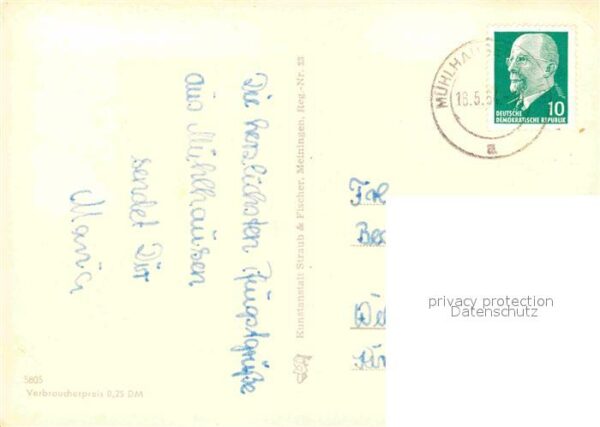 Die herzlichsten Pfingstgrüße
aus Mühlhausen
sendet Dir
Maria
Kunstanstalt Straub & Fischer, Meiningen, Reg.-Nr.
5805
Verbraucherpreis 0,25 DM
MÜHLHAU
18.5.
a
10
DEUTSCHE
DEMOKRATISCHE REPUBLIK
privacy protection
Datenschutz